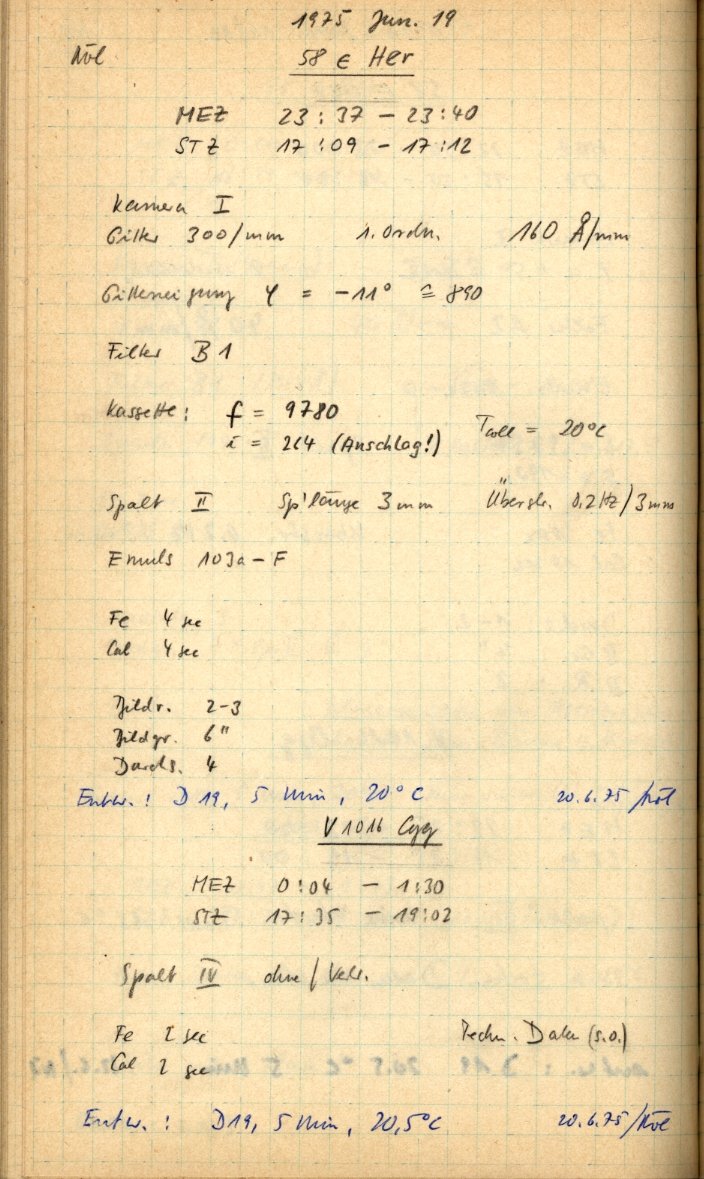 1975 Jun. 19
Köl 58 ε Her
MEZ 23:37 – 23:40
STZ 17:09 – 17:12
Kamera I
Gitter 300/mm 1. Ordn. 160 Å/mm
Gitterneigung φ = -11° ≅ 890
Filter B1
Kassette: f = 9780
T = 20°C
i = 264 (Anschlag!)
Spalt II Sp'länge 3 mm Überstr. 0.2 Hz/3mm
Emuls 103a-F
Fe 4 sec
Cal 4 sec
Bildr. 2-3
Bildgr. 6"
Durchs. 4
Entw.: D19, 5 Min, 20°C 20.6.75 /Köl
V1016 Cyg
MEZ 0:04 – 1:30
STZ 17:35 – 19:02
Spalt IV ohne
Fe 2 sec Techn. Daten (s.o.)
Cal 2 sec
Entw.: D19, 5 Min, 20,5°C 20.6.75/Köl